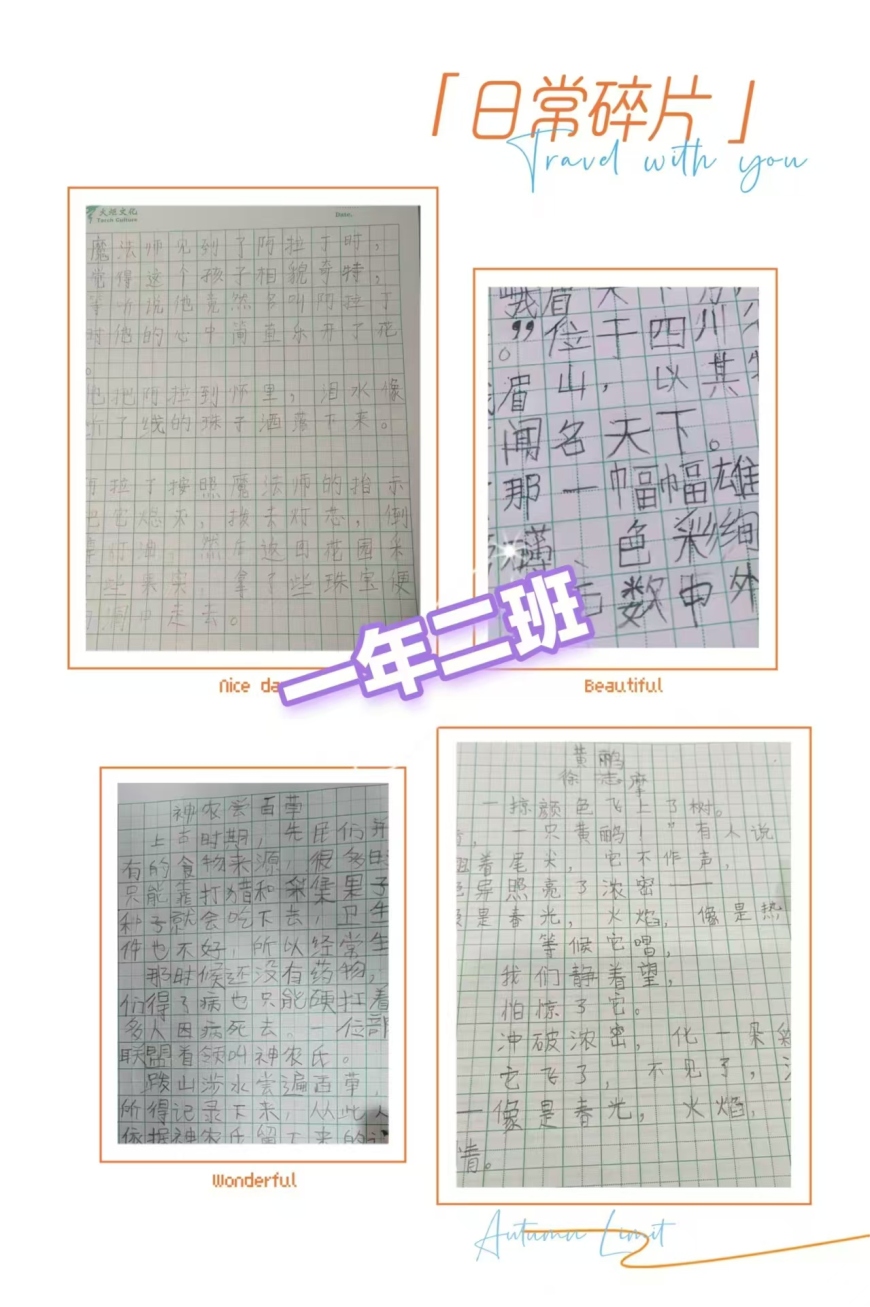 「日常碎片」
Travel with you
火炬文化
Torch Culture
Date.
魔法师见到了阿拉丁时，
觉得这个孩子相貌奇特，
等听说他竟然名叫阿拉丁
时他的心中简直乐开了花
。
他把阿拉到怀里，泪水像
断了线的珠子洒落下来。
拉丁按照魔法师的指示
把它熄灭，拔去灯芯，倒
掉灯油，然后返回花园采
些果实 拿了些珠宝便
洞中走去。
Nice da
峨眉天下
。”位于四川
眉山，以其
闻名天下。
那一幅幅雄
色彩绚
数中外
Beautiful
一年二班
神农尝百草
上古时期，先民们并
有的食物来源，很多时
只能靠打猎和采集果子
种子就会吃下去，卫生
件也不好，所以经常生
那时候还没有药物，
们得了病也只能硬扛着
多人因病死去。一位部
联盟首领叫神农氏。
跋山涉水尝遍百草，
所得记录下来，从此人
依据神农氏留下来的
Wonderful
黄鹂
徐志摩
一掠颜色飞上了树。
，一只黄鹂！”有人说
翘着尾尖，它不作声，
异照亮了浓密——
是春光，火焰，像是热
等候它唱，
我们静着望，
怕惊了它。
冲破浓密，化一朵彩
它飞了，不见了，
一像是春光，火焰，
情。
Autumn Limit